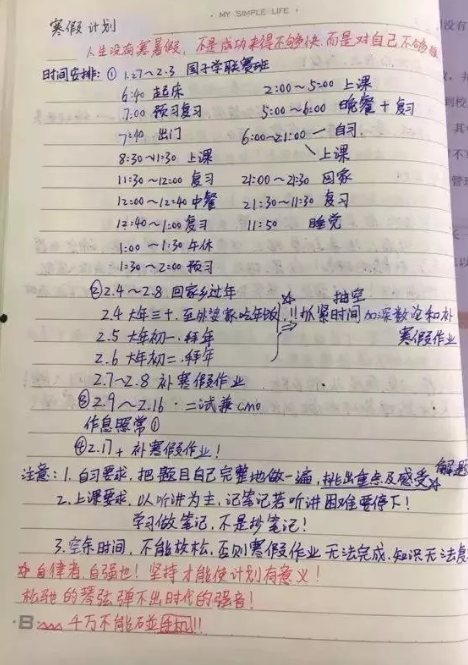 · MY SIMPLE LIFE ·
寒假计划
人生没有寒暑假，不是成功来得不够快，而是对自己不够狠
时间安排：① 1.27～2.3 国子学联赛班
6:40 起床 2:00～5:00 上课
7:00 预习复习 5:00～6:00 晚餐＋复习
7:40 出门 6:00～21:00 自习
8:30～11:30 上课 上课
11:30～12:00 复习 21:00～21:30 回家
12:00～12:40 中餐 21:30～11:30 复习
12:40～1:00 复习 11:50 睡觉
1:00～1:30 午休
1:30～2:00 预习
②2.4～2.8 回家乡过年 抽空
2.4 大年三十，至外婆家吃年饭 !!抓紧时间加深数论和补
2.5 大年初一，拜年 寒假作业
2.6 大年初二，拜年
2.7～2.8 补寒假作业
③2.9～2.16 二试兼cmo
作息照常①
④2.17+ 补寒假作业！
注意：1.自习要求，把题目自己完整地做一遍，挑出重点及感受 解题
2.上课要求，以听讲为主，记笔记若听讲困难要停下！
学习做笔记，不是抄笔记！
3.空余时间，不能放松，否则寒假作业无法完成，知识无法复
自律者，自强也！坚持才能使计划有意义！
松弛的琴弦弹不出时代的强音！
千万不能碰手机!!!